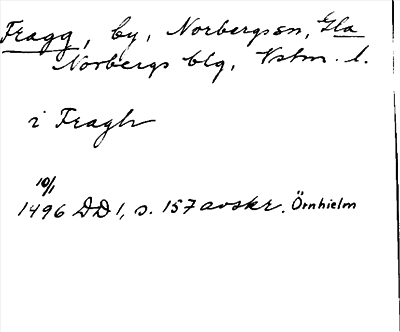 Fragg, by, Norbergssn, Gla
Norbergs blg, Vstm. l.
i Fragh
10/1
1496 DD 1, s. 157 avskr. Örnhielm